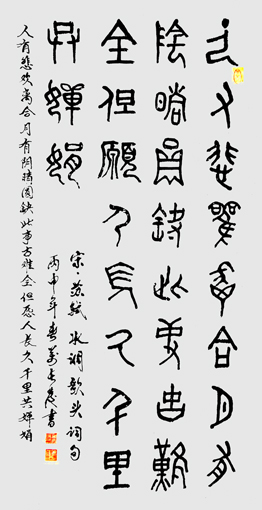 人有悲歡離合月有
陰晴員缺此事古難
全但願人長久千里
共嬋娟
宋·苏轼水调歌头词句
丙申年春书
人有悲欢离合月有阴晴圆缺此事古难全但愿人长久千里共婵娟